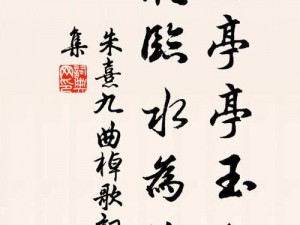 亭亭玉
臨水為
朱熹九曲棹歌
集